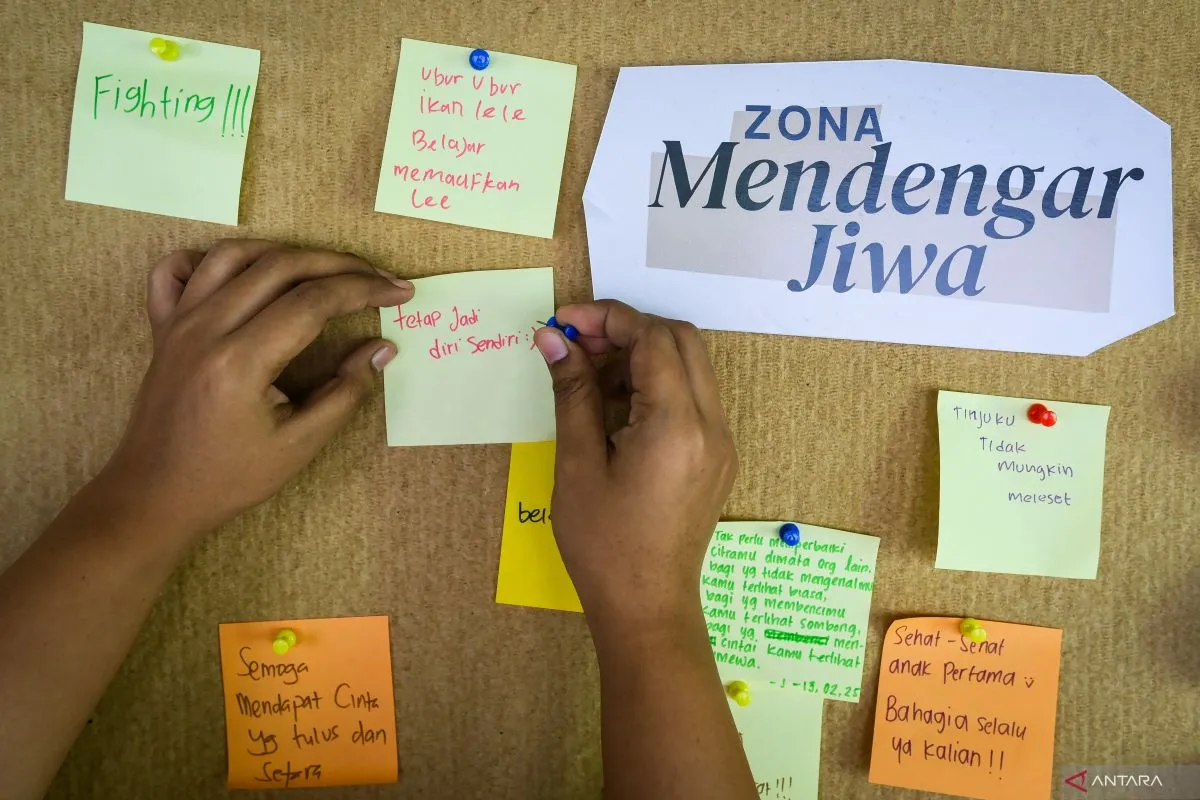 Fighting!!!
Ubur Ubur
ikan lele
Belajar
memaafkan
Lee
ZONA
Mendengar
Jiwa
tetap Jadi
diri Sendiri :)
Tinjuku
Tidak
Mungkin
meleset
Tak perlu memperbaiki
citramu dimata org lain.
bagi yg tidak mengenalmu
kamu terlihat biasa,
bagi yg membencimu
kamu terlihat sombong,
bagi yg men-
cintai kamu terlihat
- 1 - 13.02.25
Semoga
Mendapat Cinta
yg tulus dan
Setara
Sehat-Sehat
anak Pertama
Bahagia selalu
ya kalian!!
ANTARA